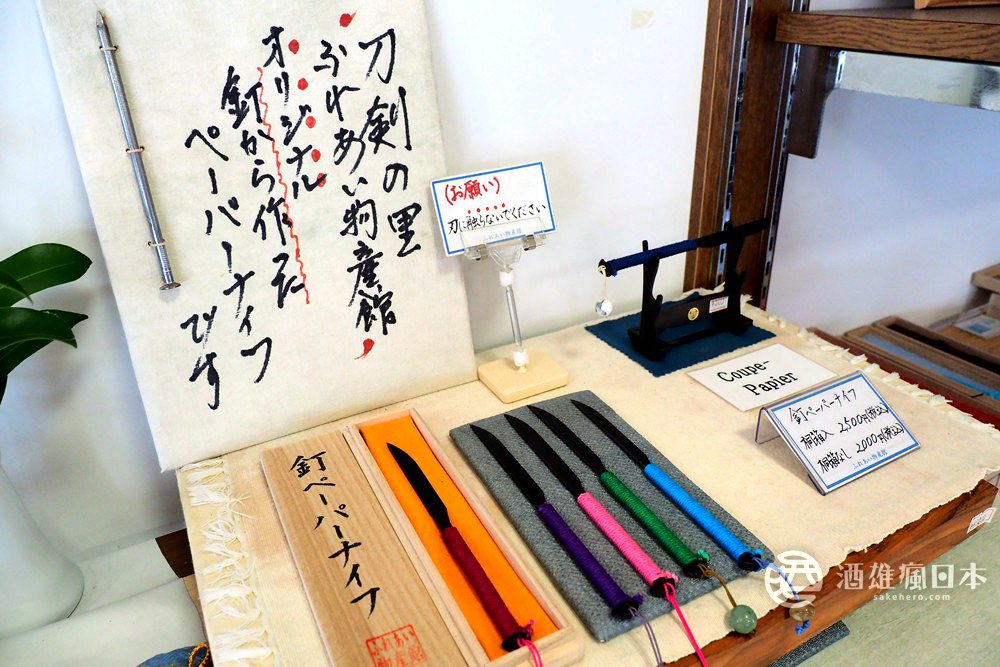 刀剣の里
ふれあい物産館
オリジナル
釘から作った
ペーパーナイフ
です
(お願い)
刃に触らないでください
ふれあい物産館
Coupe-
Papier
釘ペーパーナイフ
桐箱入 2,500円(税込)
桐箱なし 2,000円(税込)
ふれあい物産館
釘ペーパーナイフ
ふれあい
物産館
酒雄瘋日本
sakehero.com